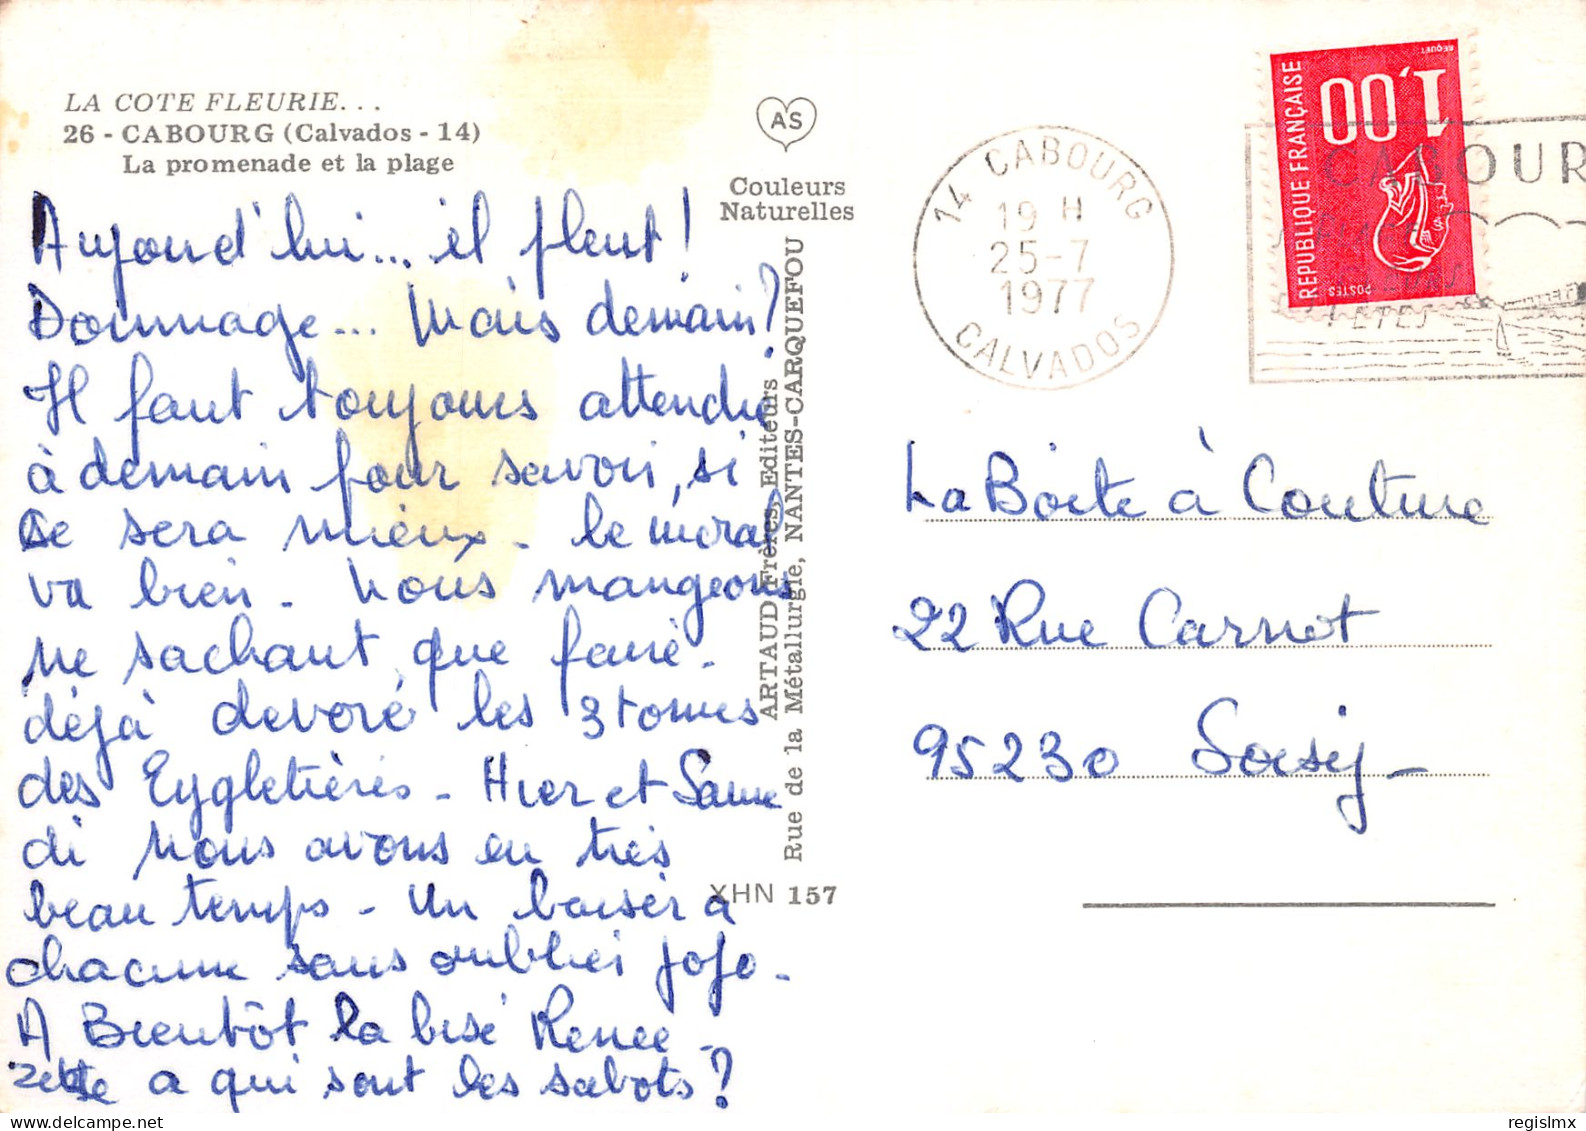 LA COTE FLEURIE...
26 - CABOURG (Calvados - 14)
La promenade et la plage
Aujourd'hui... il pleut!
Dommage... Mais demain?
Il faut toujours attendre
à demain pour savoir, si
ce sera mieux - le moral
va bien - Nous mangeons
ne sachant que faire -
déjà dévoré les 3 tomes
des Eygletières - Hier et Same
di nous avons eu très
beau temps - Un baiser à
chacune sans oublier Jojo -
A Bientôt la bise Renee -
a qui sont les sabots?
AS
Couleurs
Naturelles
ARTAUD Frères, Editeurs
Rue de la Métallurgie, NANTES-CARQUEFOU
XHN 157
14 CABOURG
19 H
25-7
1977
CALVADOS
REPUBLIQUE FRANÇAISE
1,00
POSTES
BEQUET
CABOUR
FETES
La Boite à Couture
22 Rue Carnot
95230 Soisy -
regislmx